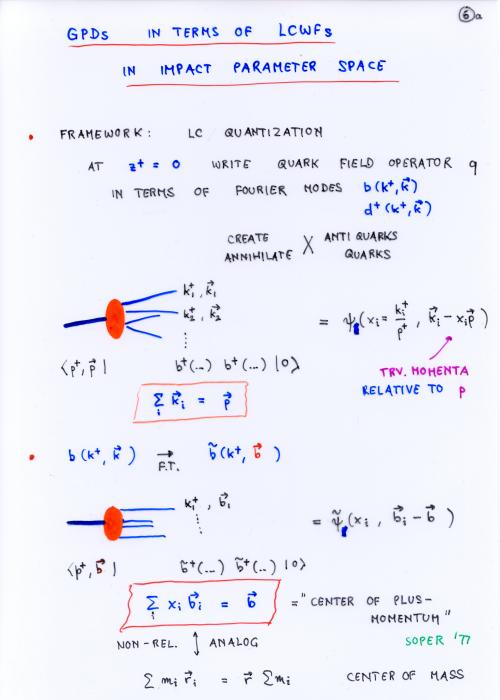 6a
GPDs IN TERMS OF LCWFs
IN IMPACT PARAMETER SPACE
• FRAMEWORK: LC QUANTIZATION
AT z⁺ = 0 WRITE QUARK FIELD OPERATOR q
IN TERMS OF FOURIER MODES b(k⁺,k⃗)
d⁺(k⁺,k⃗)
CREATE ANTI QUARKS
ANNIHILATE QUARKS
k₁⁺, k⃗₁
k₂⁺, k⃗₂
⋮
= ψ(xᵢ = kᵢ⁺/p⁺, k⃗ᵢ - xᵢp⃗)
⟨p⁺,p⃗| b⁺(...) b⁺(...) |0⟩
TRV. MOMENTA
RELATIVE TO p
∑ᵢ k⃗ᵢ = p⃗
• b(k⁺,k⃗) → F.T. b̃(k⁺,b⃗)
k₁⁺, b⃗₁
⋮
= ψ̃(xᵢ, b⃗ᵢ - b⃗)
⟨p⁺,b⃗| b̃⁺(...) b̃⁺(...) |0⟩
∑ᵢ xᵢ b⃗ᵢ = b⃗ = "CENTER OF PLUS-
MOMENTUM"
NON-REL. ↕ ANALOG SOPER '77
∑ mᵢ r⃗ᵢ = r⃗ ∑ mᵢ CENTER OF MASS